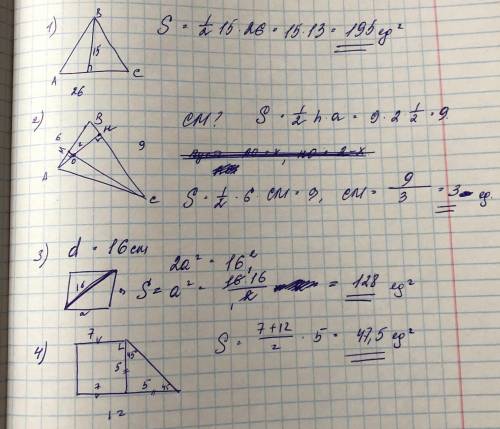 1) B
15
A C
26
S = 1/2 15 · 26 = 15 · 13 = 195 ед²
2) B
6 2 9
A C
CM? S = 1/2 h · a = 9 · 2 1/2 = 9
S = 1/2 · 6 · CM = 9, CM = 9/3 = 3 ед.
3) d = 16 см
2a² = 16²,
16
a
S = a² = 16·16/2 = 128 ед²
4) 7
45
5
7 5 45
12
S = 7+12/2 · 5 = 47,5 ед²